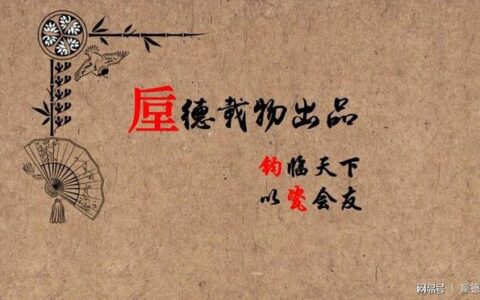 垕德载物出品
钧临天下
以瓷会友
网易号 | 垕德